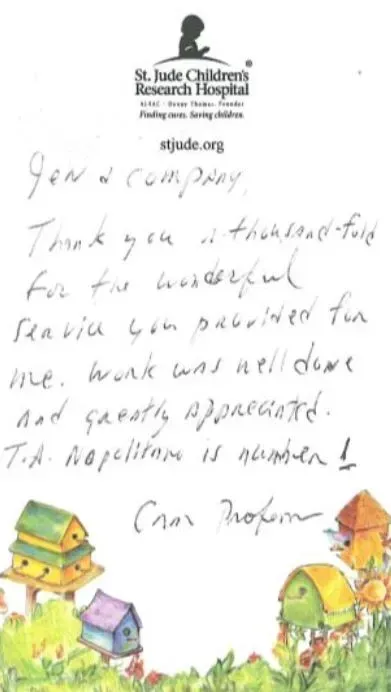 St. Jude Children's
Research Hospital
ALSAC · Danny Thomas, Founder
Finding cures. Saving children.
stjude.org
Jen & company,
Thank you a thousand-fold
for the wonderful
service you provided for
me. Work was well done
and greatly appreciated.
T.A. Napolitano is number 1